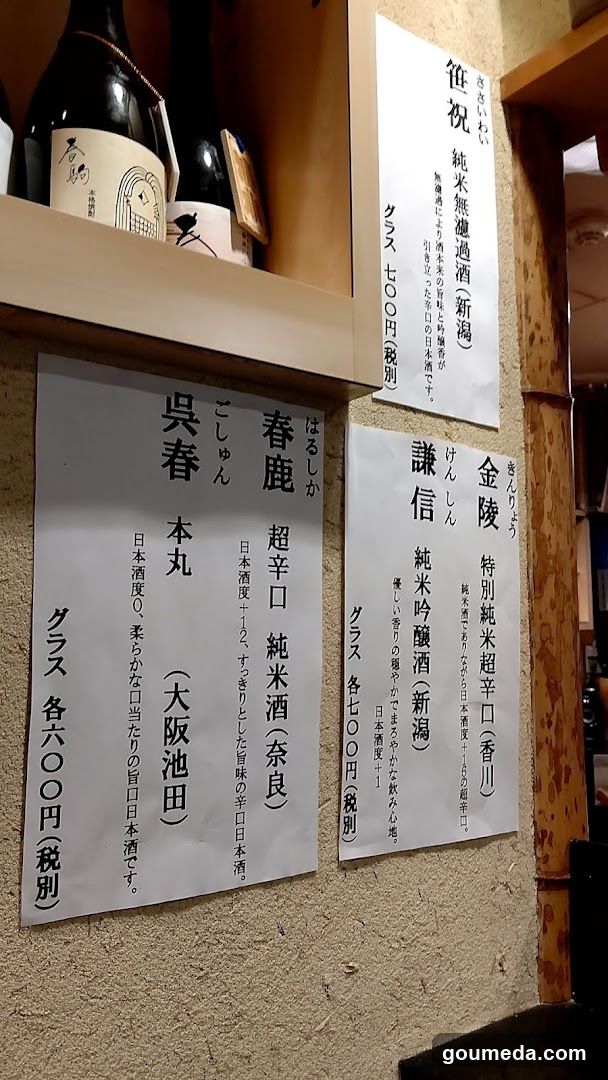 春駒
本格焼酎
春
ささいわい
笹祝 純米無濾過酒(新潟)
無濾過により酒本来の旨味と吟醸香が
引き立った辛口の日本酒です。
グラス 七〇〇円(税別)
はるしか
春鹿 超辛口 純米酒(奈良)
日本酒度+12、すっきりとした旨味の辛口日本酒。
ごしゅん
呉春 本丸 (大阪池田)
日本酒度0、柔らかな口当たりの旨口日本酒です。
グラス 各六〇〇円(税別)
きんりょう
金陵 特別純米超辛口(香川)
純米酒でありながら日本酒度+16の超辛口。
けんしん
謙信 純米吟醸酒(新潟)
優しい香りの穏やかでまろやかな飲み心地。
日本酒度+1
グラス 各七〇〇円(税別)
goumeda.com